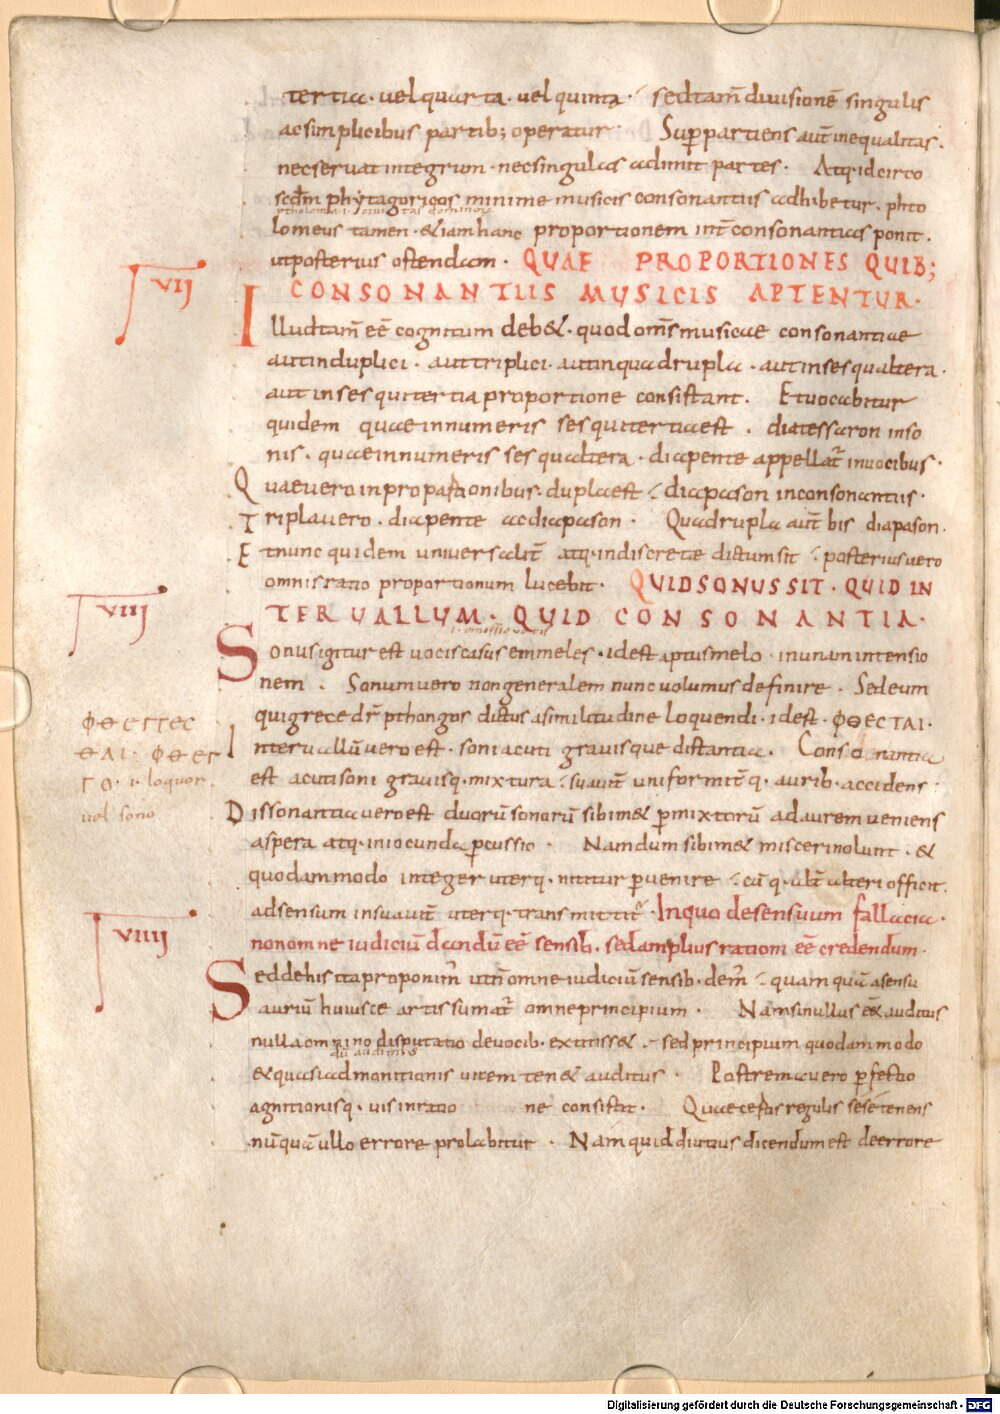 tertia · vel quarta · vel quinta · sed tam̄ divisionē singulis
ac simplicibus partib; operatur · Sup̄partiens aut̄ inequalitas ·
nec servat integrum · nec singulas adimit partes · Atq· idcirco
scd̄m phytagoricos minime musicis consonantiis adhibetur · phto
ptholomai · civitas dominor
lomeus tamen · & iam hanc proportionem int̄ consonantias ponit ·
ut posterius ostendam · QUAE PROPORTIONES QUIB;
VII
CONSONANTIIS MUSICIS APTENTUR ·
Illud tam̄ eē cognitum deb& · quod om̄s musicae consonantiae
aut in duplici · aut triplici · aut in quadrupla · aut in sesqualtera ·
aut in sesquitertia proportione consistant · Et vocabitur
quidem quae in numeris sesquitertia est · diatessaron in so
nis · quae in numeris sesqualtera · diapente appellat᷑ in vocibus ·
Quae vero in propationibus · dupla est · diapason in consonantiis ·
Tripla vero · diapente ac diapason · Quadrupla aut̄ bis diapason ·
Et nunc quidem universalit̄ atq· indiscrete dictum sit · posterius vero
omnis ratio proportionum lucebit · QUID SONUS SIT · QUID IN
VIII
TERVALLUM · QUID CONSONANTIA ·
i · emissio vocis
Sonus igitur est vocis casus emmeles · id est aptus melo · in unam intensio
nem · Sonum vero non generalem nunc volumus definire · Sed eum
qui grece dr̄ pthongos dictus a similitudine loquendi · id est · ΦΘΕCΤΑΙ ·
ΦΘΕΓΓΕC
Intervallū vero est · soni acuti gravisque distantia · Consonantia
ΘΑΙ · ΦΘΕΓ
est acuti soni gravisq· mixtura · suavit̄ uniformit̄q· aurib· accidens ·
ΓΟ · i · loquor
vel sono
Dissonantia vero est duorū sonorū sibim& p̄mixtorū ad aurem veniens
aspera atq· iniocunda p̄cussio · Nam dum sibim& misceri nolunt · &
quodammodo integer uterq· nititur p̄venire · cū q· alt̄ alteri officit ·
ad sensum insuavit̄ uterq· transmittit᷑ · In quo de sensuum fallacia ·
VIIII
non omne iudiciū dandū eē sensib· sed amplius rationi eē credendum ·
Sed de his ita proponim᷑ ut n̄ omne iudiciū sensib· dem᷑ · quamquā a sensu
auriū huiusce artis sumat᷑ omne principium · Nam si nullus eē& auditus
nulla omnino disputatio de vocib· extitiss& · sed principium quodammodo
dū audimus
& quasi admonitionis vicem ten& auditus · Postrema vero p̄fectio
agnitionisq· vis in ratione consistat · Quae certis regulis sese tenens
nūquā ullo errore prolabitur · Nam quid diutius dicendum est de errore
Digitalisierung gefördert durch die Deutsche Forschungsgemeinschaft - DFG